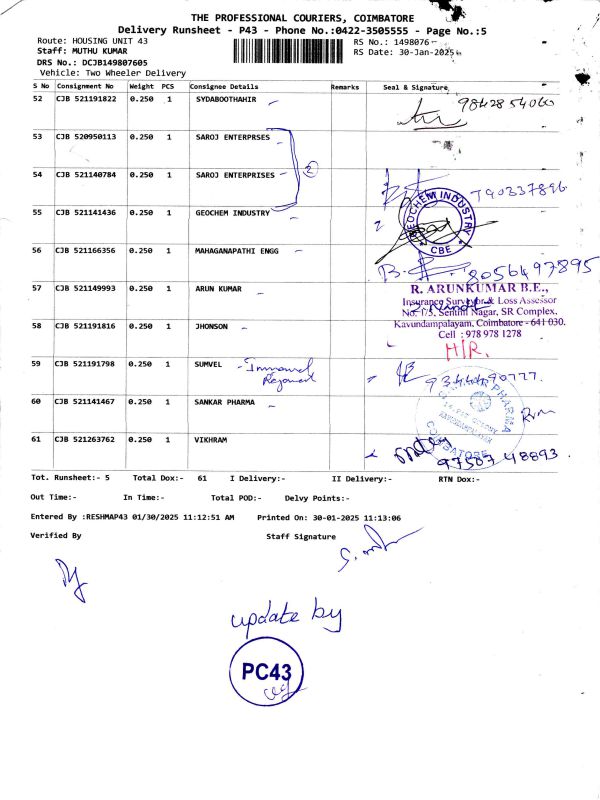 THE PROFESSIONAL COURIERS, COIMBATORE
Delivery Runsheet - P43 - Phone No.:0422-3505555 - Page No.:5
Route: HOUSING UNIT 43
RS No.: 1498076
Staff: MUTHU KUMAR
RS Date: 30-Jan-2025
DRS No.: DCJB149807605
Vehicle: Two Wheeler Delivery
S No Consignment No Weight PCS Consignee Details Remarks Seal & Signature
52 CJB 521191822 0.250 1 SYDABOOTHAHIR 9842854060
53 CJB 520950113 0.250 1 SAROJ ENTERPRSES
2
54 CJB 521140784 0.250 1 SAROJ ENTERPRISES
55 CJB 521141436 0.250 1 GEOCHEM INDUSTRY
GEOCHEM INDUSTRY
CBE
56 CJB 521166356 0.250 1 MAHAGANAPATHI ENGG
8056497895
57 CJB 521149993 0.250 1 ARUN KUMAR
R. ARUNKUMAR B.E.,
Insurance Surveyor & Loss Assessor
No. 1/5, Senthil Nagar, SR Complex,
Kavundampalayam, Coimbatore - 641 030.
Cell : 978 978 1278
58 CJB 521191816 0.250 1 JHONSON
H/R.
59 CJB 521191798 0.250 1 SUMVEL
60 CJB 521141467 0.250 1 SANKAR PHARMA
PHARMA
COIMBATORE
61 CJB 521263762 0.250 1 VIKHRAM
97507 48893
Tot. Runsheet:- 5 Total Dox:- 61 I Delivery:- II Delivery:- RTN Dox:-
Out Time:- In Time:- Total POD:- Delvy Points:-
Entered By :RESHMAP43 01/30/2025 11:12:51 AM Printed On: 30-01-2025 11:13:06
Verified By Staff Signature
update by
PC43